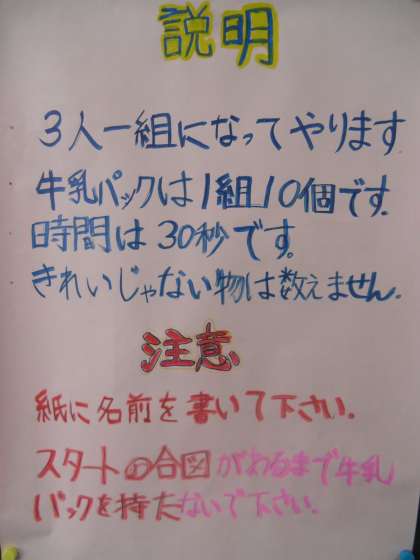 説明
3人一組になってやります
牛乳パックは1組10個です.
時間は30秒です.
きれいじゃない物は数えません.
注意
紙に名前を書いて下さい.
スタートの合図があるまで牛乳
パックを持たないで下さい.